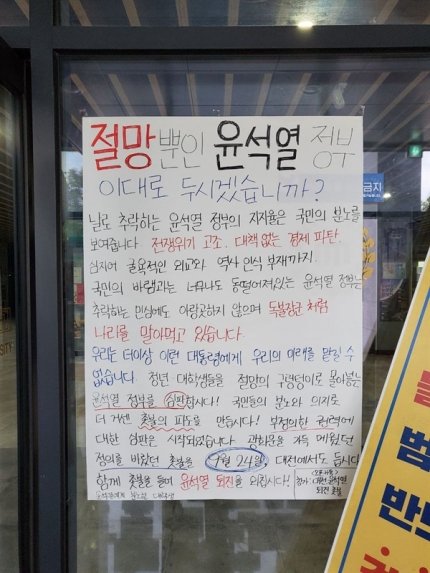 절망뿐인 윤석열 정부
이대로 두시겠습니까?
날로 추락하는 윤석열 정부의 지지율은 국민의 분노를
보여줍니다. 전쟁위기 고조, 대책없는 경제 파탄,
심지어 굴욕적인 외교와 역사 인식 부재까지.
국민의 바램과는 너무나도 동떨어져있는 윤석열 정부는
추락하는 민심에도 아랑곳하지 않으며 독불장군처럼
나라를 말아먹고 있습니다.
우리는 더이상 이런 대통령에게 우리의 미래를 맡길 수
없습니다. 청년 대학생들을 절망의 구렁텅이로 몰아넣는
윤석열 정부를 심판합시다! 국민들의 분노와 의지로
더 거센 촛불의 파도를 만듭시다! 부정의한 권력에
대한 심판은 시작되었습니다. 광화문을 가득 메웠던
정의를 바랬던 촛불을 9월 24일, 대전에서도 듭시다
함께 촛불을 들며 윤석열 퇴진을 외칩시다!
대전 윤석열
퇴진 촛불
금지
범
반